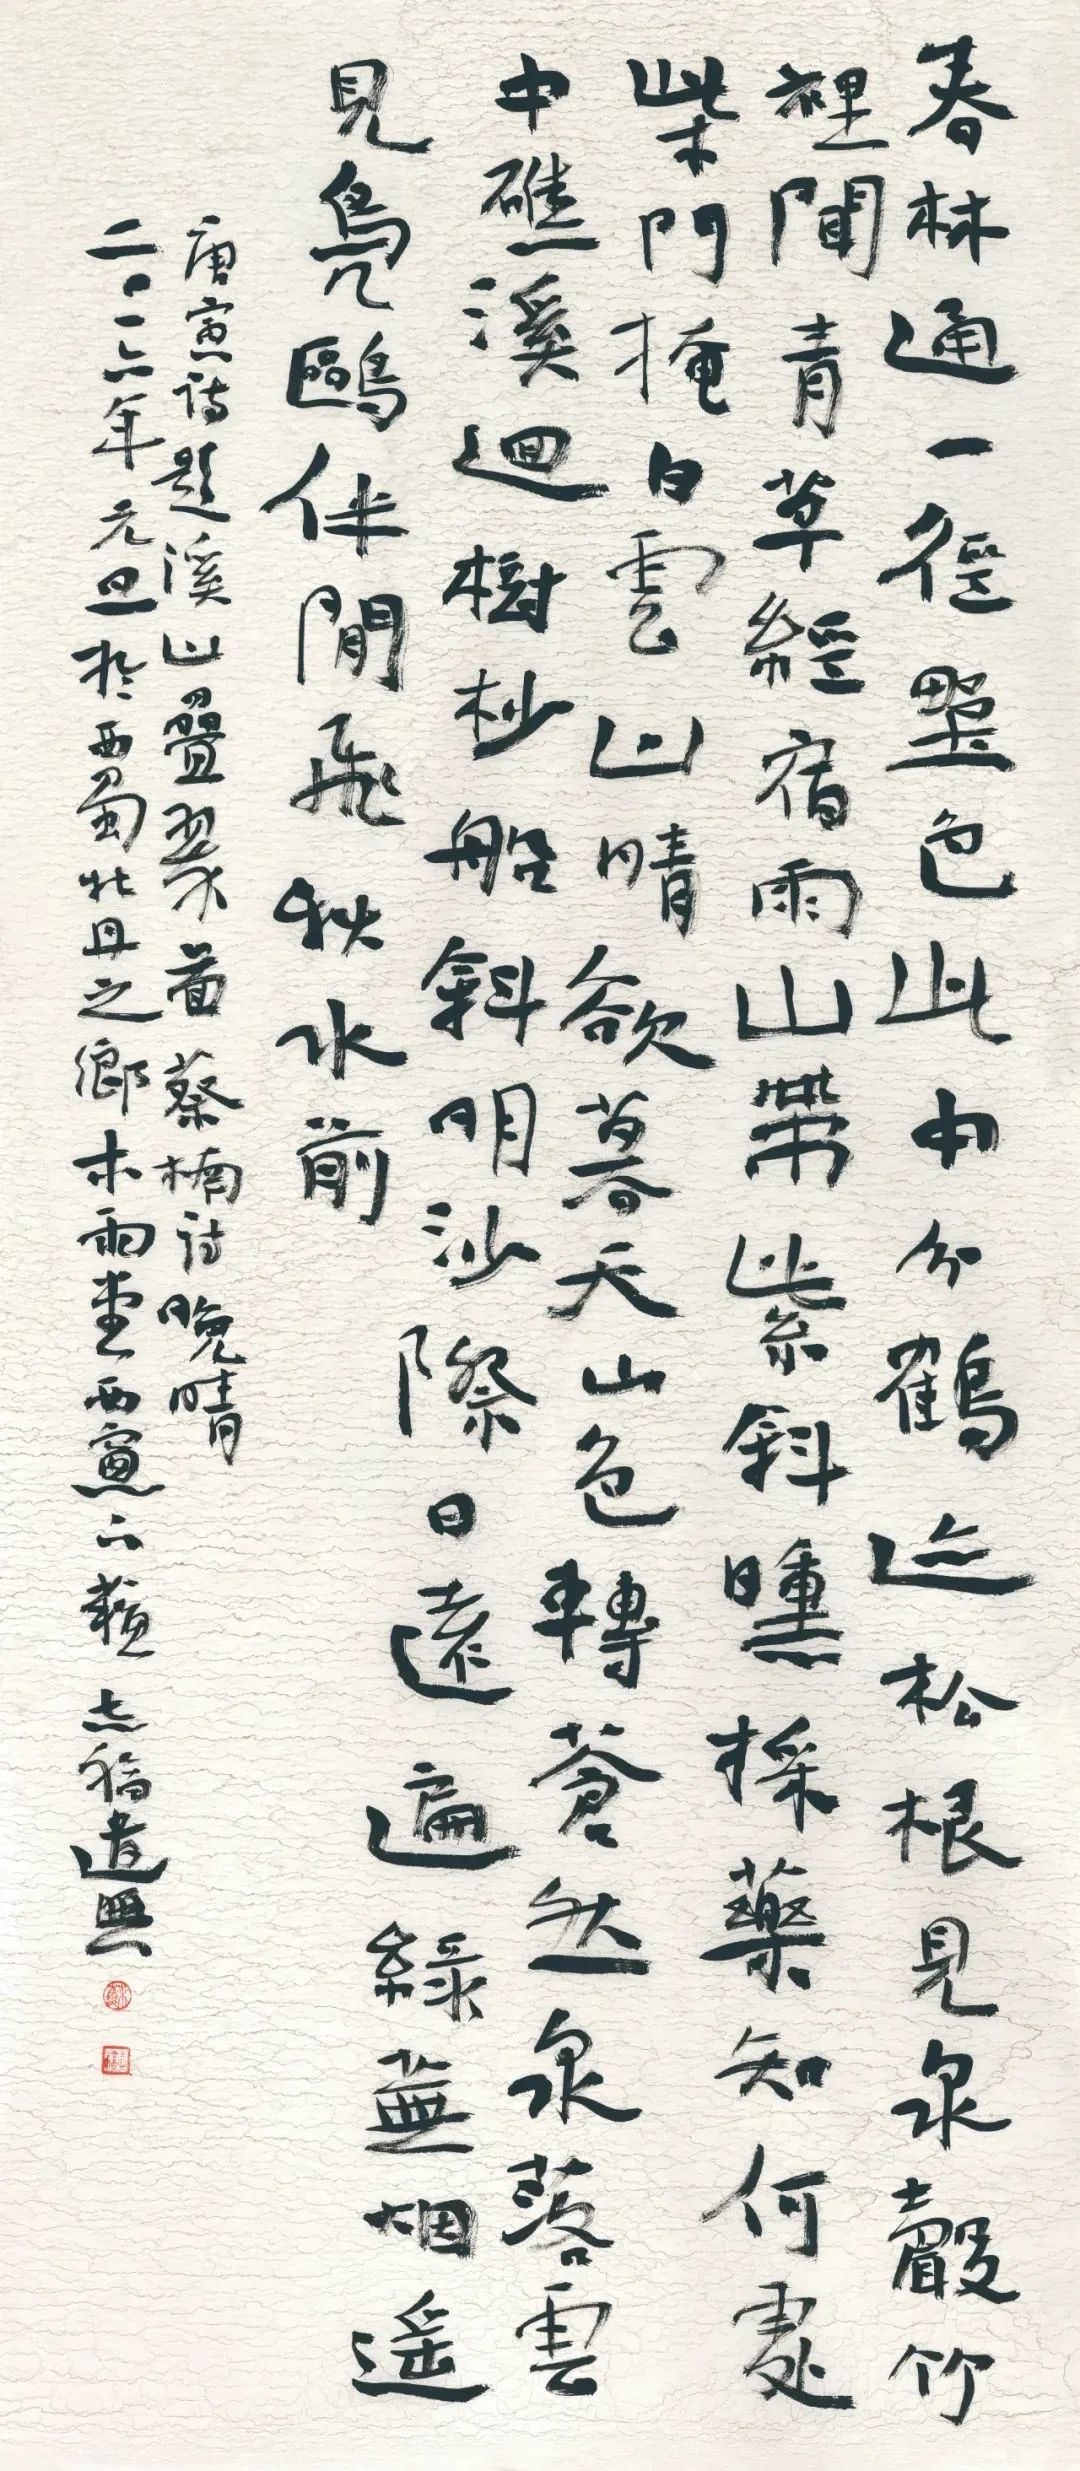 春林通一徑野色此中分鶴迹松根見泉聲竹
裡聞青草經宿雨山帶紫斜曛採藥知何處
柴門掩白雲山晴欲暮天山色轉蒼然泉落雲
中礁溪迴樹杪船斜明沙際日遠遍綠蕪烟遥
見鳧鷗伴閒飛秋水前
唐寅詩題溪山疊翠圖蔡楠詩晚晴
二〇一六年元旦於西蜀牡丹之鄉木雨堂西窗下藉志福道興